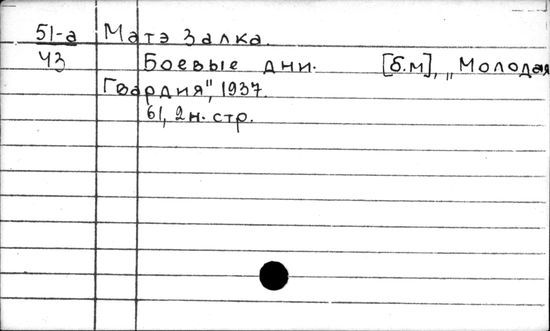 51-а Матэ Залка.
43 Боевые дни. [б.м], „Молодая
Гвардия", 1937.
61, 2н. стр.